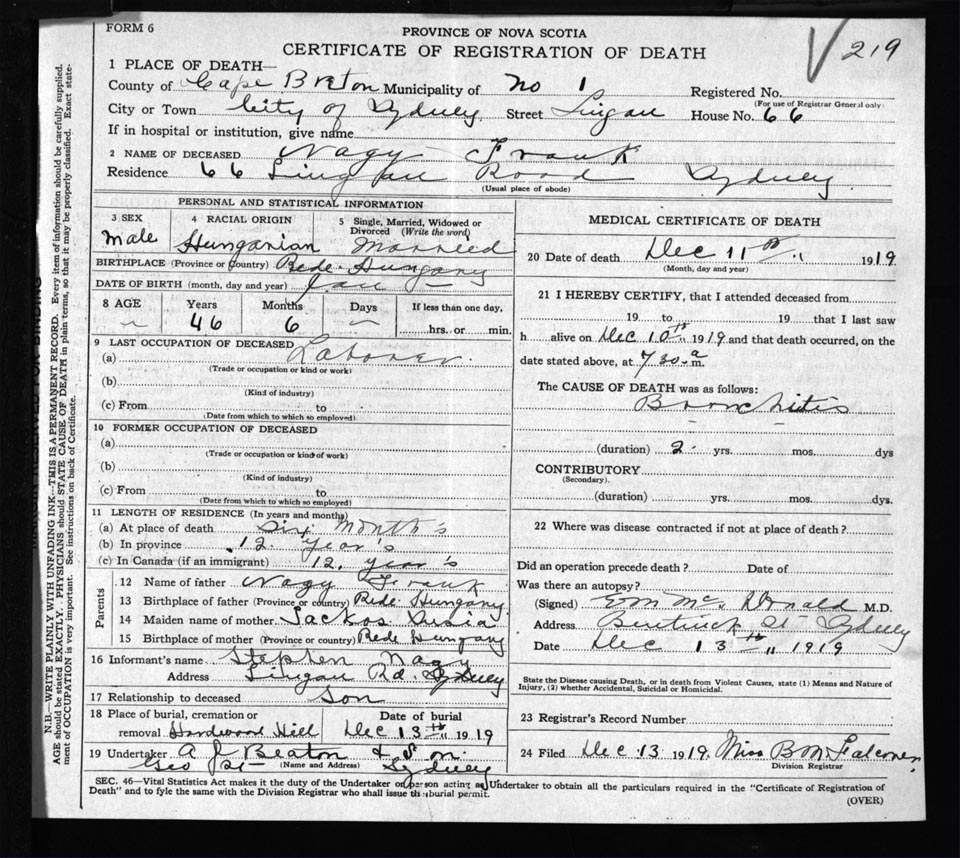 FORM 6
PROVINCE OF NOVA SCOTIA
CERTIFICATE OF REGISTRATION OF DEATH
219
1 PLACE OF DEATH—
County of Cape Breton Municipality of No 1 Registered No.
(For use of Registrar General only)
City or Town City of Sydney Street Lingan House No. 66
If in hospital or institution, give name
2 NAME OF DECEASED Nagy Frank
Residence 66 Lingan Road Sydney
(Usual place of abode)
PERSONAL AND STATISTICAL INFORMATION
3 SEX 4 RACIAL ORIGIN 5 Single, Married, Widowed or Divorced (Write the word)
Male Hungarian Married
BIRTHPLACE (Province or Country) Rede Hungary
DATE OF BIRTH (month, day and year) Jan
8 AGE Years Months Days If less than one day,
46 6 hrs. or min.
9 LAST OCCUPATION OF DECEASED
(a) Laborer
(Trade or occupation or kind or work)
(b)
(Kind of industry)
(c) From to
(Date from which to which so employed)
10 FORMER OCCUPATION OF DECEASED
(a)
(Trade or occupation or kind of work)
(b)
(Kind of industry)
(c) From to
(Date from which to which so employed)
11 LENGTH OF RESIDENCE (In years and months)
(a) At place of death Six Month's
(b) In province 12. Year's
(c) In Canada (if an immigrant) 12. year's
Parents
12 Name of father Nagy Frank
13 Birthplace of father (Province or country) Rede Hungary
14 Maiden name of mother
15 Birthplace of mother (Province or country) Rede Hungary
16 Informant's name Stephen Nagy
Address Lingan Rd. Sydney
17 Relationship to deceased Son
18 Place of burial, cremation or removal Hardwood Hill
Date of burial Dec 13th 1919
19 Undertaker A J Beaton & Son
(Name and Address) Geo St Sydney
MEDICAL CERTIFICATE OF DEATH
20 Date of death Dec 11th 1919
(Month, day and year)
21 I HEREBY CERTIFY, that I attended deceased from
19 to 19 that I last saw
h alive on Dec 10th 1919 and that death occurred, on the
date stated above, at 7 30 a m.
The CAUSE OF DEATH was as follows:
Bronchitis
(duration) 2 yrs. mos. dys
CONTRIBUTORY
(Secondary).
(duration) yrs. mos. dys.
22 Where was disease contracted if not at place of death?
Did an operation precede death? Date of
Was there an autopsy?
(Signed) M.D.
Address St Sydney
Date Dec 13th 1919
State the Disease causing Death, or in death from Violent Causes, state (1) Means and Nature of
Injury, (2) whether Accidental, Suicidal or Homicidal.
23 Registrar's Record Number
24 Filed Dec 13 1919. Miss B M Falconer
Division Registrar
SEC. 46—Vital Statistics Act makes it the duty of the Undertaker or person acting as Undertaker to obtain all the particulars required in the "Certificate of Registration of
Death" and to fyle the same with the Division Registrar who shall issue the burial permit.
(OVER)
N.B.—WRITE PLAINLY WITH UNFADING INK—THIS IS A PERMANENT RECORD. Every item of information should be carefully supplied.
AGE should be stated EXACTLY. PHYSICIANS should STATE CAUSE OF DEATH in plain terms, so that it may be properly classified. Exact state-
ment of OCCUPATION is very important. See instructions on back of Certificate.